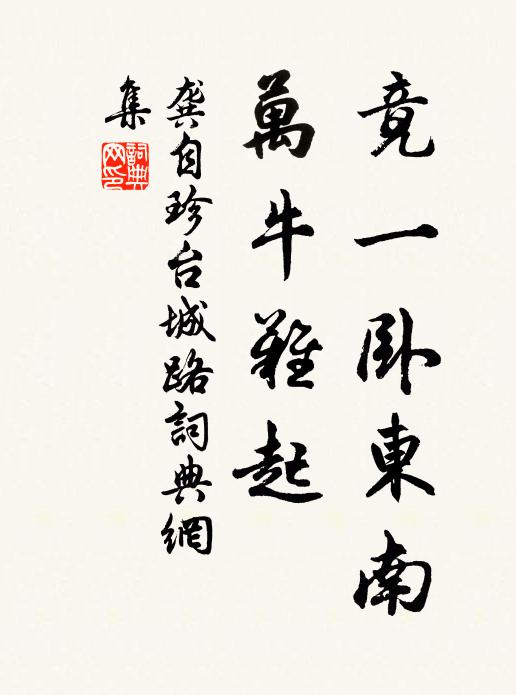 竟一卧東南
萬牛難起
龔自珍台城路詞典網
集
詞典網印